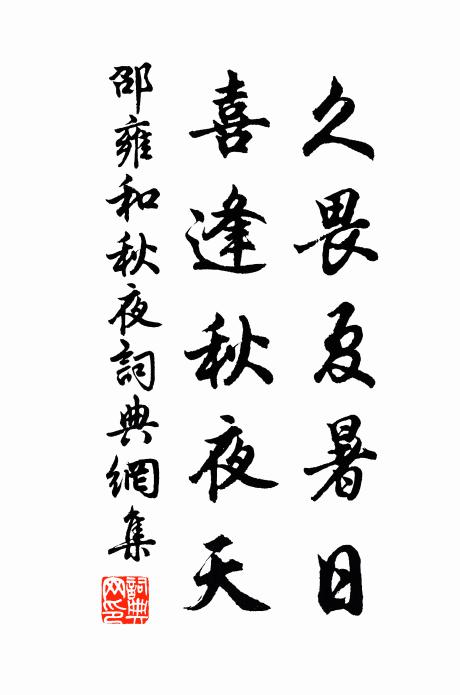 久畏夏暑日
喜逢秋夜天
邵雍和秋夜詞典網集
詞典
网印